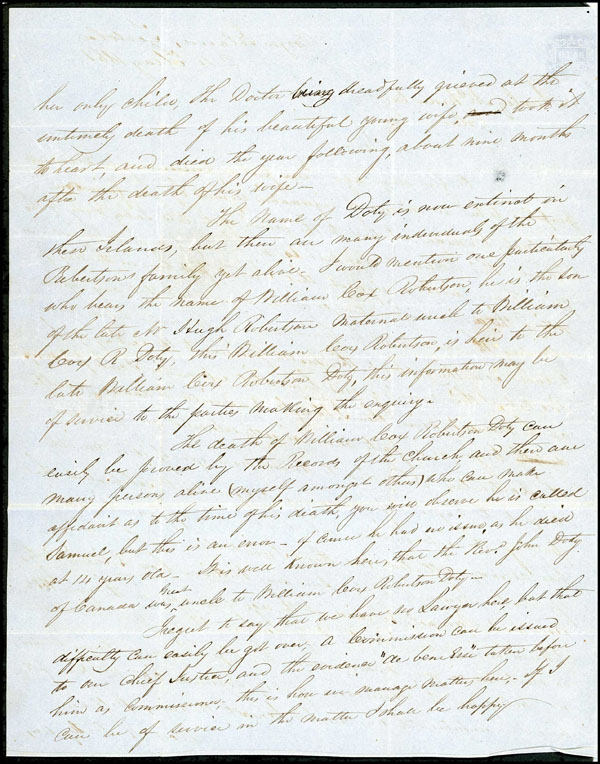 her only child, The Doctor being dreadfully grieved at the
untimely death of his beautiful young wife, and took it
to heart, and died the year following, about nine months
after the death of his wife -
The Name of Doty is now extinct in
these Islands, but there are many individuals of the
Robertsons family yet alive - I would mention one particularly
who bears the name of William Cox Robertson, he is the son
of the late Mr Hugh Robertson Maternal uncle to William
Cox R. Doty, this William Cox Robertson, is heir to the
late William Cox Robertson Doty, this information may be
of service to the parties making the enquiry -
The death of William Cox Robertson Doty can
easily be proved by the Records of the Church and there are
many persons alive (myself amongst others) who can make
affidavit as to the time of his death, you will observe he is called
Samuel, but this is an error - of course he had no issue as he died
at 14 years old - It is well known here, that the Revd. John Doty
of Canada was great uncle to William Cox Robertson Doty -
I regret to say that we have no Lawyer here, but that
difficulty can easily be got over, a Commission can be issued
to our Chief Justice, and the evidence "de bene esse" taken before
him as Commissioner, this is how we manage matters here. - If I
can be of service in the matter I shall be happy